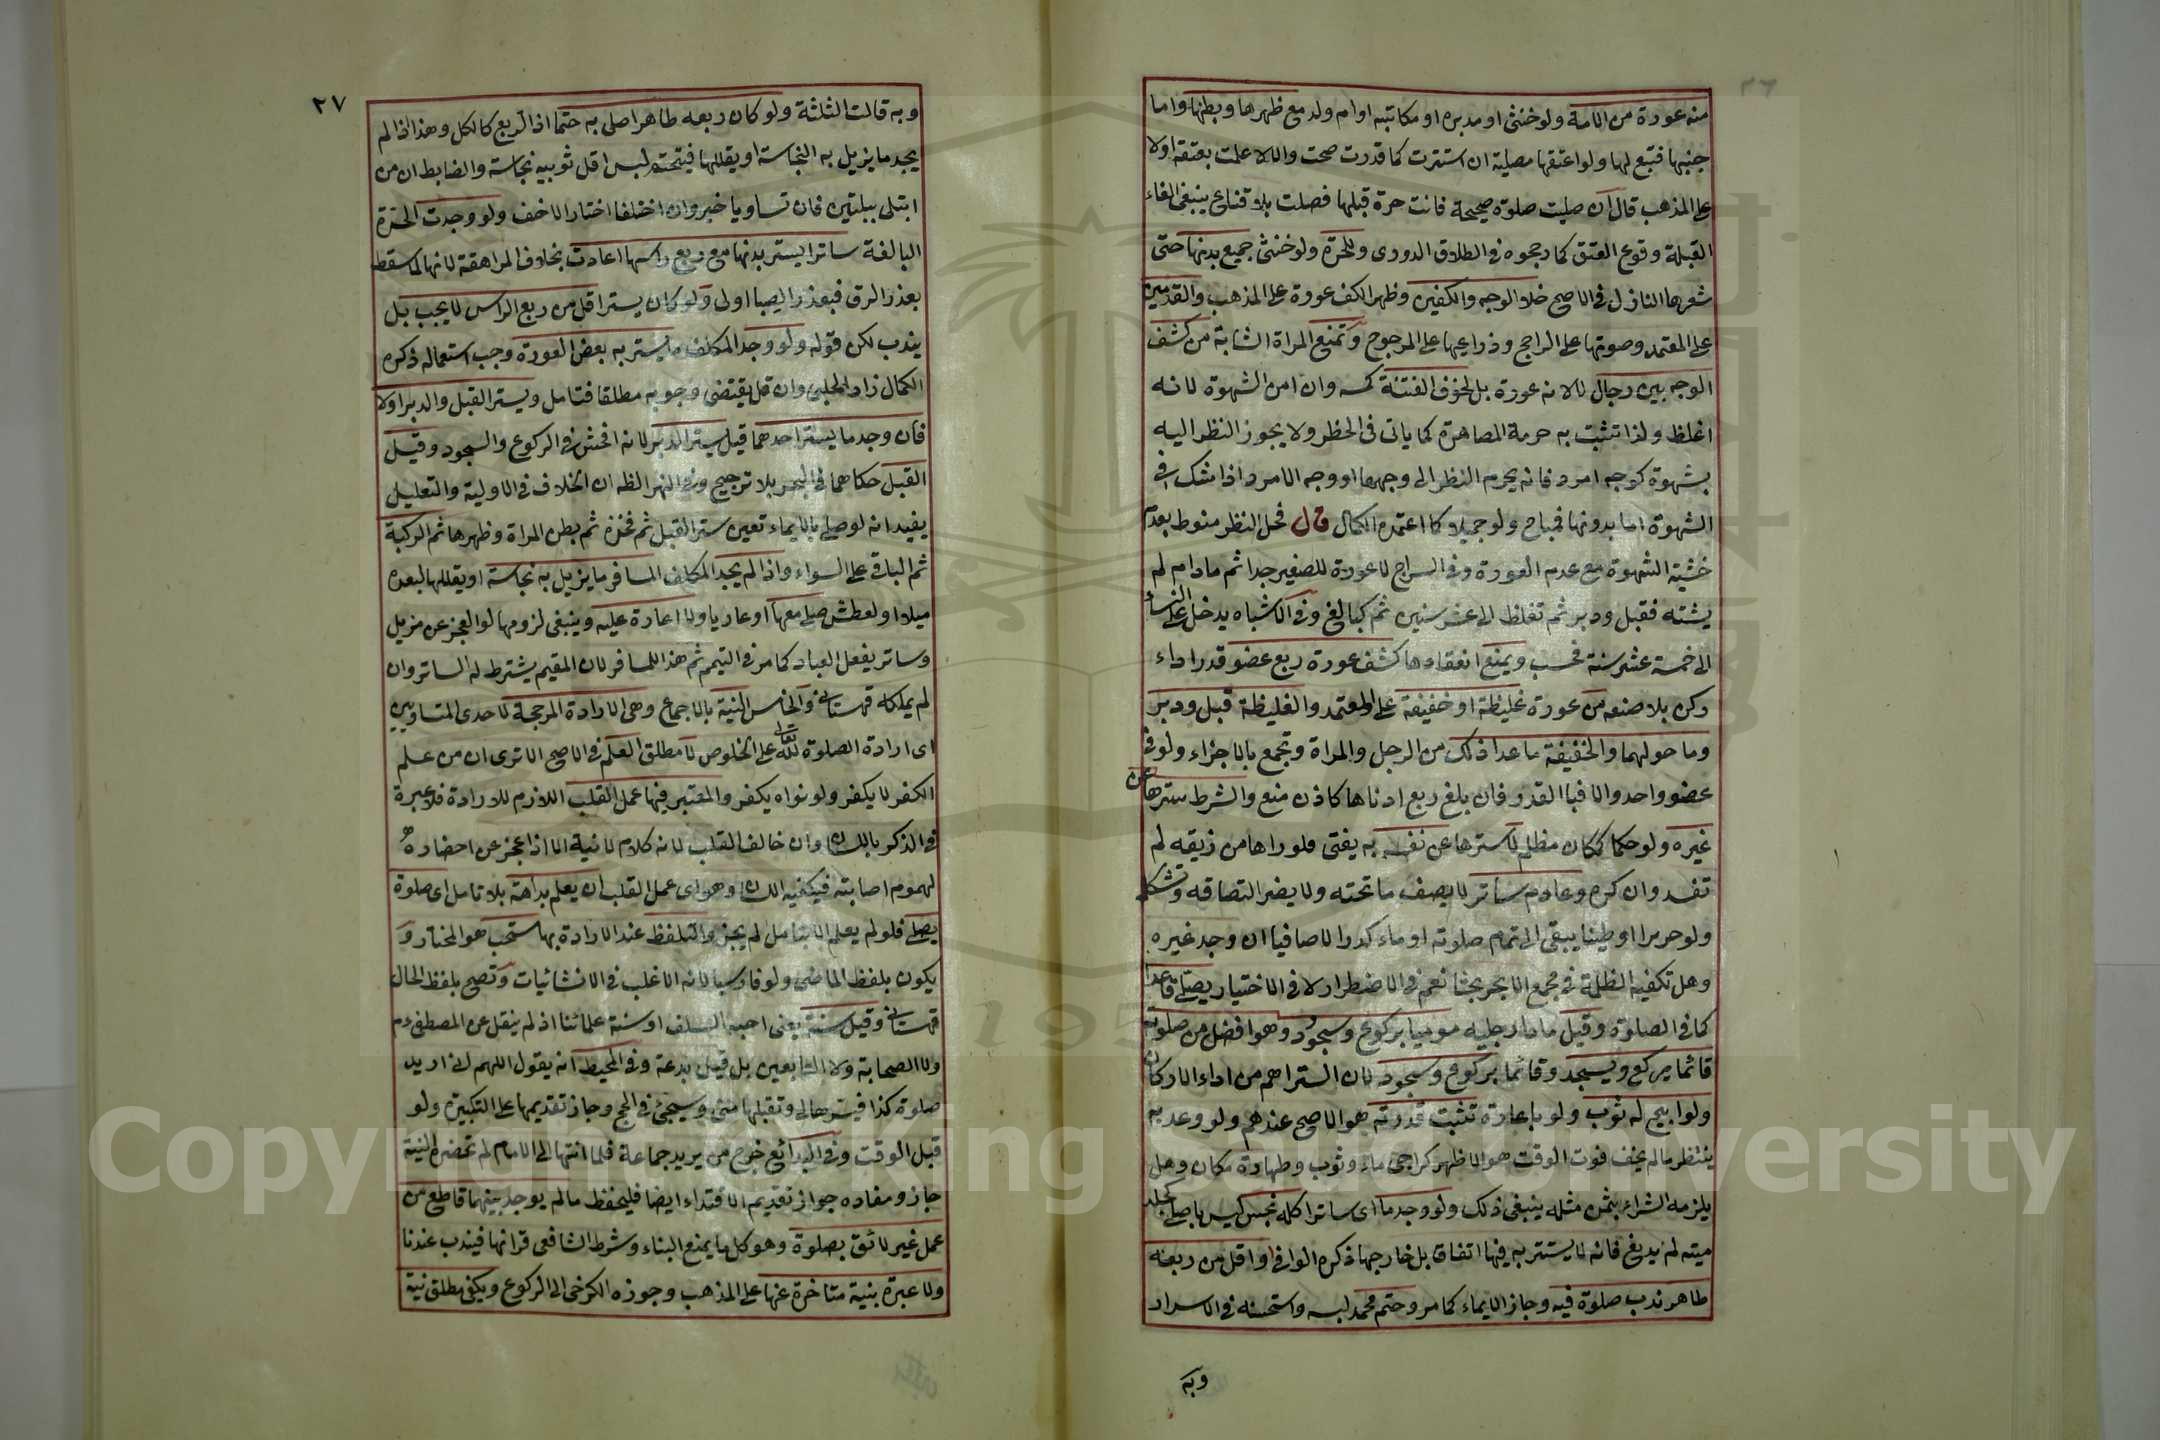 ٢٦
منه عورة من الامة ولو خنثى او مدبرة او مكاتبه او ام ولد مع ظهرها وبطنها واما
جنبها فتبع لها ولو اعتقها مصلية ان استترت كما قدرت صحت والا لا علمت بعتقه اولا
على المذهب قال ان صليت صلوة صحيحة فانت حرة قبلها فصلت بلا قناع ينبغى الغاء
القبلية وقوع العتق كما رجحوه فى الطلاق الدورى وللحرة ولو خنثى جميع بدنها حتى
شعرها النازل فى الاصح خلا الوجه والكفين وظهر الكف عورة على المذهب والقدمين
على المعتمد وصوتها على الراجح وذراعيها على المرجوح وتمنع المراة الشابة من كشف
الوجه بين رجال لا لانه عورة بل لخوف الفتنة كمسه وان امن الشهوة لانه
اغلظ ولذا تثبت به حرمة المصاهرة كما ياتى فى الحظر ولا يجوز النظر اليه
بشهوة كوجه امرد فانه يحرم النظر الى وجهها ووجه الامرد اذا شك فى
الشهوة اما بدونها فيباح ولو جميلا كما اعتمده الكمال قال فحل النظر منوط بعدم
خشية الشهوة مع عدم العورة وفى السراج لا عورة للصغير جدا ثم مادام لم
يشته فقبل ودبر ثم تغلظ الى عشر سنين ثم كبالغ وفى الاشباه يدخل على النساء
الى خمسة عشر سنة فحسب ويمنع انعقادها كشف عورة ربع عضو قدر اداء
ركن بلا صنعه من عورة غليظة او خفيفة على المعتمد والغليظة قبل ودبر
وما حولهما والخفيفة ما عدا ذلك من الرجل والمراة وتجمع بالاجزاء ولو فى
عضو واحد والا فبالقدر فان بلغ ربع ادناها كاذن منع والشرط سترها عن
غيره ولو حكما كمكان مظلم لا سترها عن نفسه به يفتى فلو راها من زيقه لم
تفسد وان كره وعادم ساتر لا يصف ما تحته ولا يضر التصاقه وتشكله
ولو حريرا او طينا يبقى الى تمام صلوته او ماء كدرا لا صافيا ان وجد غيره
وهل تكفيه الظلمة فى مجمع الابحر بحثا نعم فى الاضطرار لا فى الاختيار يصلى قاعدا
كما فى الصلوة وقيل مادا رجليه موميا بركوع وسجود وهو افضل من صلوته
قائما يركع ويسجد وقائما بركوع وسجود لان الستر اهم من اداء الاركان
ولو ابيح له ثوب ولو باعارة تثبت قدرته هو الاصح عندهم ولو وعد به
ينتظر ما لم يخف فوت الوقت هو الاظهر كراجى ماء وثوب وطهارة مكان وهل
يلزمه الشراء بثمن مثله ينبغى ذلك ولو وجد ما اى ساترا كله نجس ليس باصلى كجلد
ميتة لم يدبغ فانه لا يستتر به فيها اتفاق بل خارجها ذكره الوافى او اقل من ربعه
طاهر ندب صلوة فيه وجاز الايماء كما مر وحتم محمد لبسه واستحسنه فى الاسرار
وبه
٢٧
وبه قالت الثلثة ولو كان ربعه طاهرا صلى به حتما اذ الربع كالكل وهذا اذا لم
يجد ما يزيل به النجاسة او يقللها فيتحتم لبس اقل ثوبيه نجاسة والضابط ان من
ابتلى ببليتين فان تساويا خير وان اختلفا اختار الاخف ولو وجدت الحرة
البالغة ساترا يستر بدنها مع ربع راسها اعادت بخلاف المراهقة لانها لما سقط
بعذر الرق فبعذر الصبا اولى ولو كان يستر اقل من ربع الراس لا يجب بل
يندب لكن قوله ولو وجد المكلف ما يستر به بعض العورة وجب استعماله ذكره
الكمال زاد الحلبى وان قل يقتضى وجوبه مطلقا فتامل ويستر القبل والدبر اولا
فان وجد ما يستر احدهما قيل يستر الدبر لانه افحش فى الركوع والسجود وقيل
القبل حكاهما فى البحر بلا ترجيح وفى النهر الظه ان الخلاف فى الاولية والتعليل
يفيد انه لو صلى بالايماء تعين ستر القبل ثم فخذه ثم بطن المراة وظهرها ثم الركبة
ثم الباقى على السواء واذا لم يجد المكلف المسافر ما يزيل به نجاسة او يقللها لبعده
ميلا او لعطش صلى معها او عاريا ولا اعادة عليه وينبغى لزومها لو العجز عن مزيل
وساتر بفعل العباد كما مر فى التيمم ثم هذا للمسافر لان المقيم يشترط له الساتر وان
لم يملكه قهستانى والخامس النية بالاجماع وهى الارادة المرجحة لاحدى المتساويين
اى ارادة الصلوة لله تعالى على الخلوص لا مطلق العلم فى الاصح الا ترى ان من علم
الكفر لا يكفر ولو نواه يكفر والمعتبر فيها عمل القلب اللازم للارادة فلا عبرة
فى الذكر باللسان وان خالف القلب لانه كلام لا نية الا اذا عجز عن احضاره
لهموم اصابته فيكفيه اللسان وهو اى عمل القلب ان يعلم بداهة بلا تامل اى صلوة
يصلى فلو لم يعلم الا بتامل لم يجز والتلفظ عند الارادة بها مستحب هو المختار و
يكون بلفظ الماضى ولو فارسيا لانه الاغلب فى الانشائيات وتصح بلفظ الحال
قهستانى وقيل سنة يعنى احبه السلف او سنة علمائنا اذ لم ينقل عن المصطفى عم
ولا الصحابة ولا التابعين بل قيل بدعة وفى المحيط انه يقول اللهم انى اريد
صلوة كذا فيسرها لى وتقبلها منى وسيجئ فى الحج وجاز تقديمها على التكبيرة ولو
قبل الوقت وفى البدائع خرج من يريد جماعة فلما انتها الى الامام لم تحضره النية
جاز ومفاده جواز تقديم الاقتداء ايضا فليحفظ ما لم يوجد بينهما قاطع من
عمل غير لائق بصلوة وهو كل ما يمنع البناء وشرط الشافعى قرانها فيندب عندنا
ولا عبرة بنية متاخرة عنها على المذهب وجوزه الكرخى الى الركوع ويكفى مطلق نية
Copyright © King Saud University